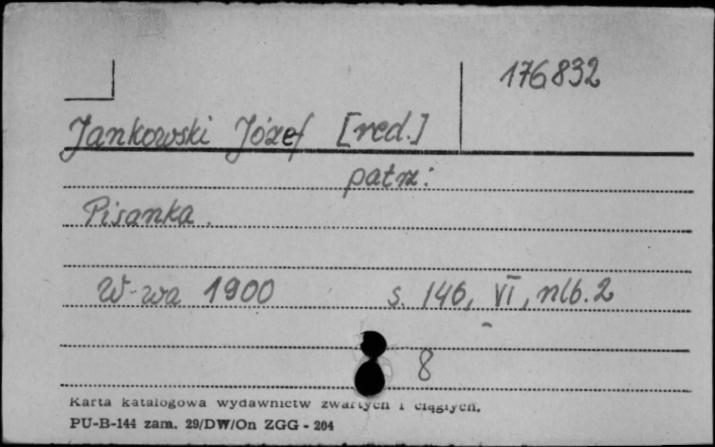 176832
Jankowski Józef [red.]
patrz:
Pisanka.
W-wa 1900 s. 146, VI, nlb. 2
8
Karta katalogowa wydawnictw zwartych i ciągłych.
PU-B-144 zam. 29/DW/On ZGG - 204